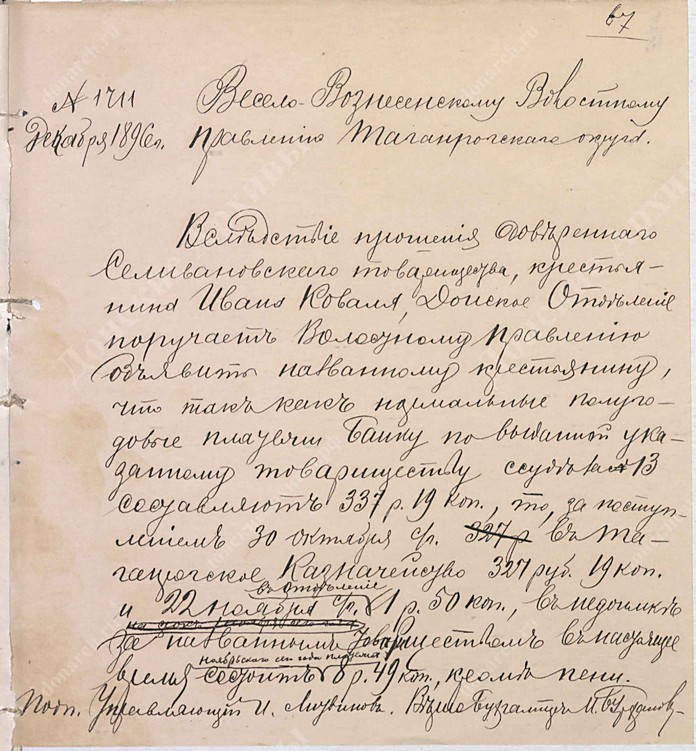 67
№ 1711
Декабря 1896 г.
Весело-Вознесенскому Волостному
Правлению Таганрогскаго округа.
Вслѣдствіе прошенія довѣреннаго
Селивановскаго товарищества, крестья-
нина Ивана Коваля, Донское Отдѣленіе
поручаетъ Волостному Правлению
объявить названному крестьянину,
что такъ какъ нормальные полуго-
довые платежи Банку по выданной ука-
занному товариществу ссудѣ за № 13
составляютъ 337 р. 19 коп., то, за поступ-
леніемъ 30 октября с/г. 327 р въ Та-
ганрогское Казначейство 327 руб. 19 коп.
въ Отдѣленіе
и 22 ноября с/г. 1 р. 50 коп., въ недоимкѣ
за названнымъ товариществомъ въ настоящее
ноябрьскаго платежа
время состоитъ 8 р. 49 коп., кромѣ пени.
Подп. Управляющій И. Вѣрно Бухгалтеръ